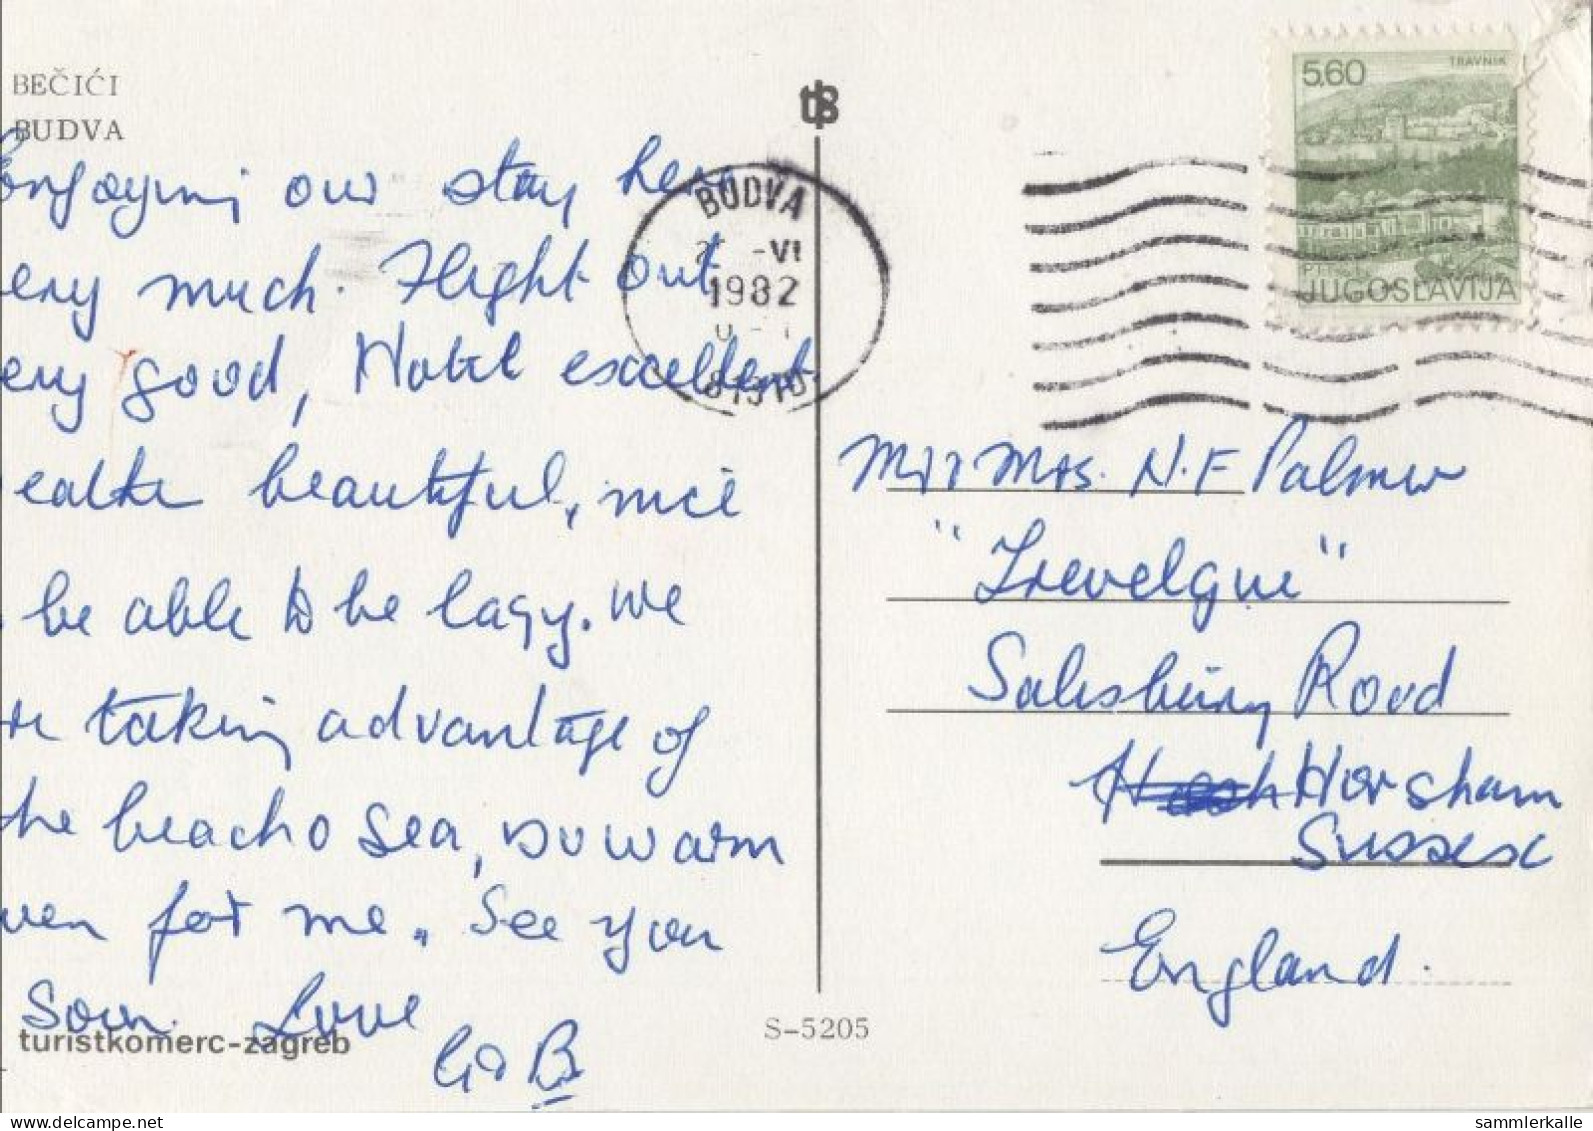 BEČIĆI
BUDVA
Engoying our stay here
very much. Flight out
very good, Hotel excellent
Weather beautiful, nice
to be able to be lazy. We
are taking advantage of
the beach & sea, so warm
even for me. See you
soon. Love
G & B
turistkomerc-zagreb
S-5205
BUDVA
-VI
1982
TRAVNIK
5,60
PTT
JUGOSLAVIJA
Mr & Mrs. N.F Palmer
"Trevelgue"
Salisbury Road
Horsham
Sussex
England.
delcampe.net
sammlerkalle